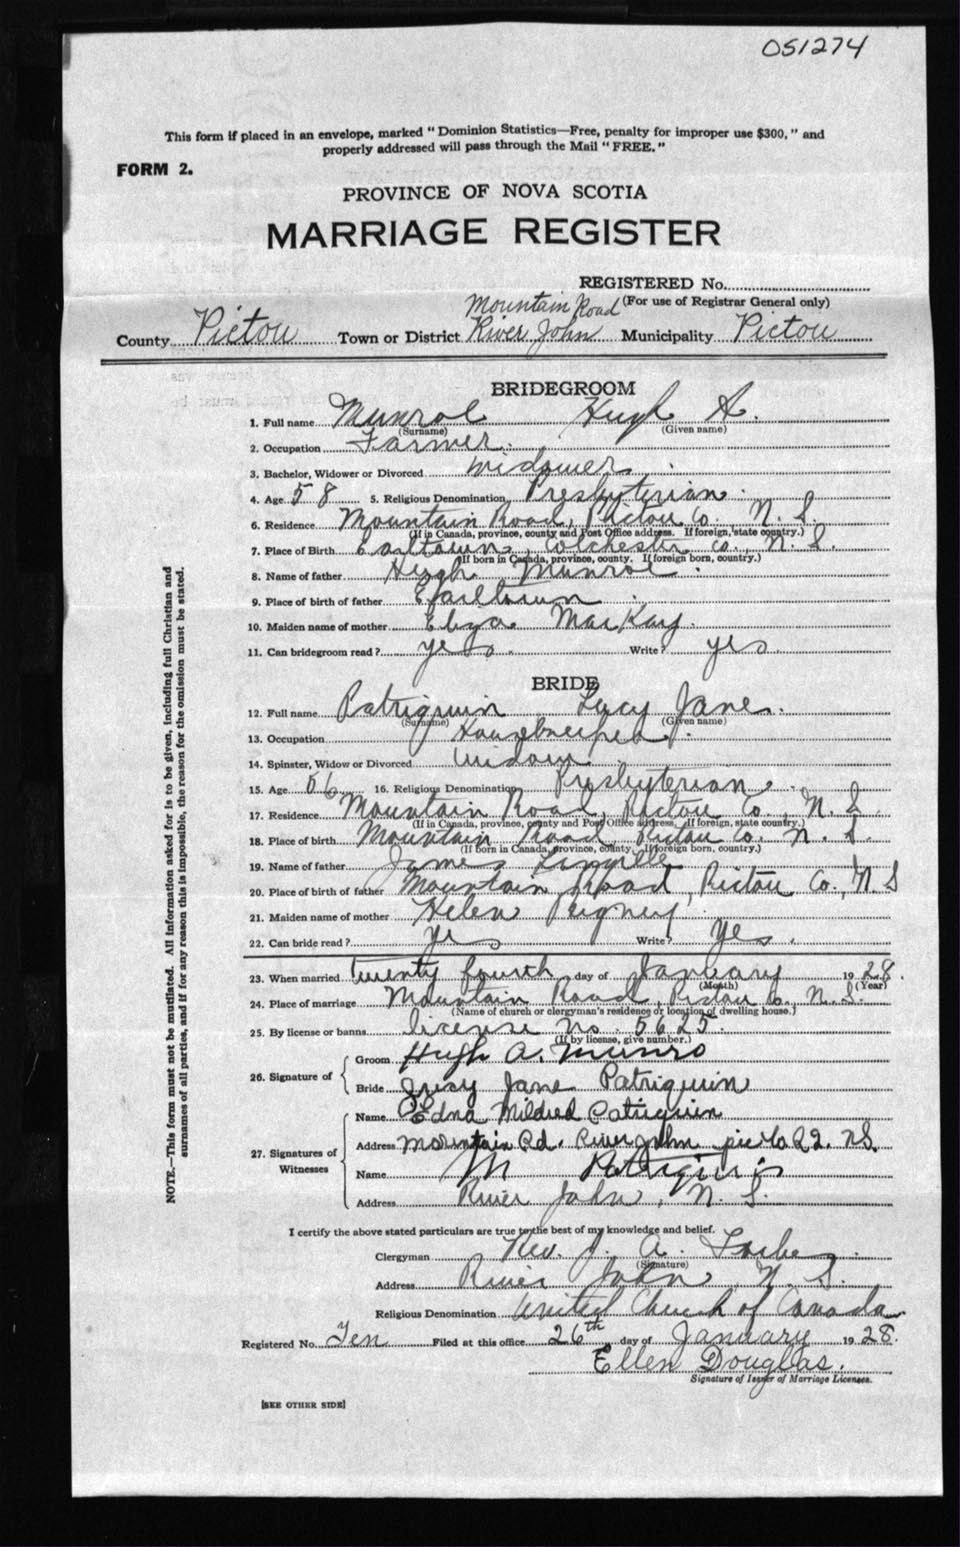 051274
This form if placed in an envelope, marked "Dominion Statistics—Free, penalty for improper use $300," and
properly addressed will pass through the Mail "FREE."
FORM 2.
PROVINCE OF NOVA SCOTIA
MARRIAGE REGISTER
REGISTERED No.
(For use of Registrar General only)
Mountain Road
County Pictou Town or District River John Municipality Pictou
BRIDEGROOM
1. Full name Munroe Hugh A.
(Surname) (Given name)
2. Occupation Farmer.
3. Bachelor, Widower or Divorced Widower.
4. Age 58 5. Religious Denomination Presbyterian.
6. Residence Mountain Road, Pictou Co. N. S.
(If in Canada, province, county and Post Office address. If foreign, state country.)
7. Place of Birth Earltown, Colchester Co., N. S.
(If born in Canada, province, county. If foreign born, country.)
8. Name of father Hugh Munroe.
9. Place of birth of father Earltown.
10. Maiden name of mother MacKay.
11. Can bridegroom read? yes. Write? yes
BRIDE
12. Full name Patriquin Lucy Jane.
(Surname) (Given name)
13. Occupation Housekeeper.
14. Spinster, Widow or Divorced widow.
15. Age 16. Religious Denomination Presbyterian.
17. Residence Mountain Road, Pictou Co., N. S.
(If in Canada, province, county and Post Office address. If foreign, state country.)
18. Place of birth Mountain Road Pictou Co. N. S.
(If born in Canada, province, county. If foreign born, country.)
19. Name of father James
20. Place of birth of father Mountain Road, Pictou Co., N. S
21. Maiden name of mother Helen
22. Can bride read? Yes Write? Yes.
23. When married Twenty fourth day of January 19 28.
(Month) (Year)
24. Place of marriage Mountain Road, Pictou Co., N. S.
(Name of church or clergyman's residence or location of dwelling house.)
25. By license or banns license no. 5625.
(If by license, give number.)
26. Signature of
Groom Hugh A. Munro
Bride Lucy Jane Patriquin
27. Signatures of Witnesses
Name Edna Mildred Patriquin
Address Mountain Rd. River John N.S.
Name M Patriquin
Address River John, N. S.
I certify the above stated particulars are true to the best of my knowledge and belief.
Clergyman Rev. J. A. Forbes.
(Signature)
Address River John, N. S.
Religious Denomination United Church of Canada.
Registered No. Ten Filed at this office 26th day of January 19 28.
Ellen Douglas.
Signature of Issuer of Marriage Licenses.
[SEE OTHER SIDE]
NOTE.—This form must not be mutilated. All information asked for is to be given, including full Christian and
surnames of all parties, and if for any reason this is impossible, the reason for the omission must be stated.